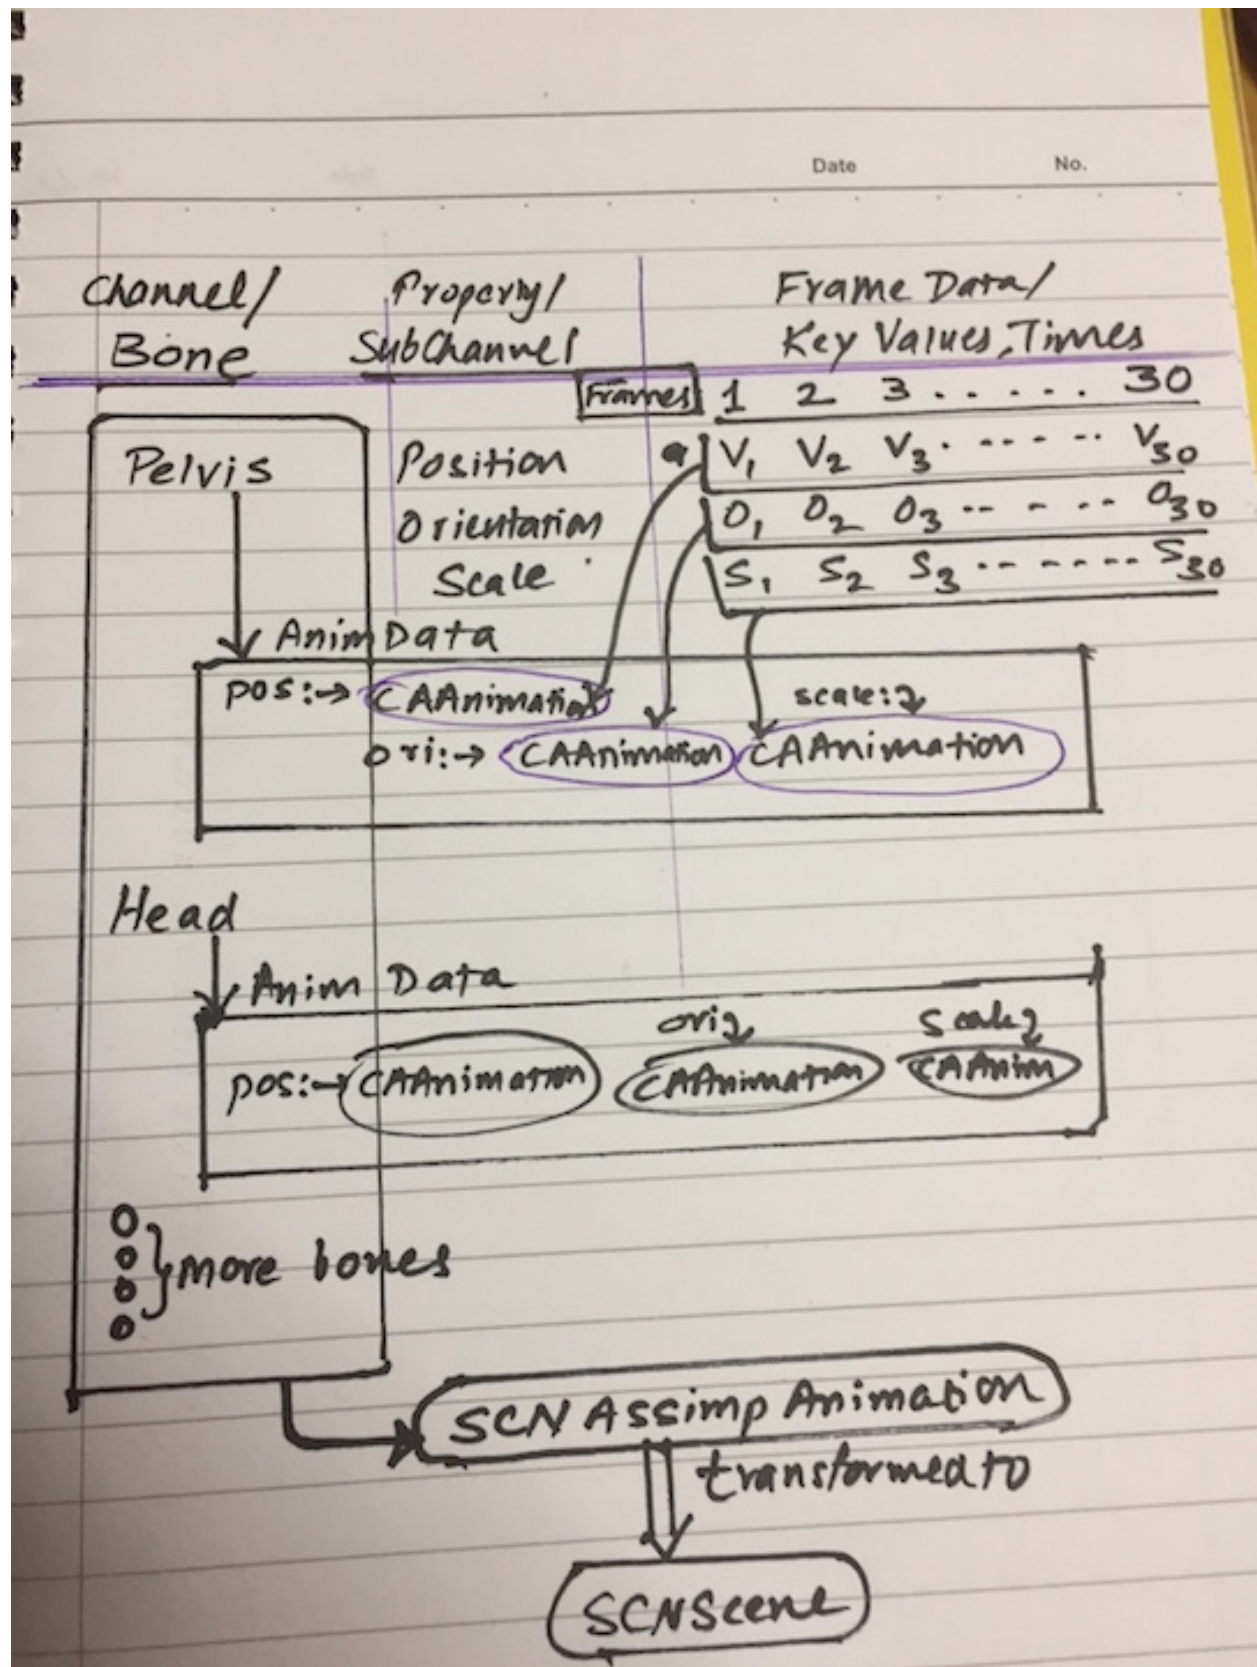 Date No.
Channel/ Property/ Frame Data/
Bone SubChannel Key Values, Times
Frames 1 2 3 . . . . . . 30
Pelvis Position V1 V2 V3 . - - - - - V30
Orientation O1 O2 O3 - - - - - - O30
Scale S1 S2 S3 - - - - - - - S30
Anim Data
pos:→ CAAnimation scale:
ori:→ CAAnimation CAAnimation
Head
Anim Data
ori scale
pos:→ CAAnimation CAAnimation CAAnim
more bones
SCN Assimp Animation
transformed to
SCNScene